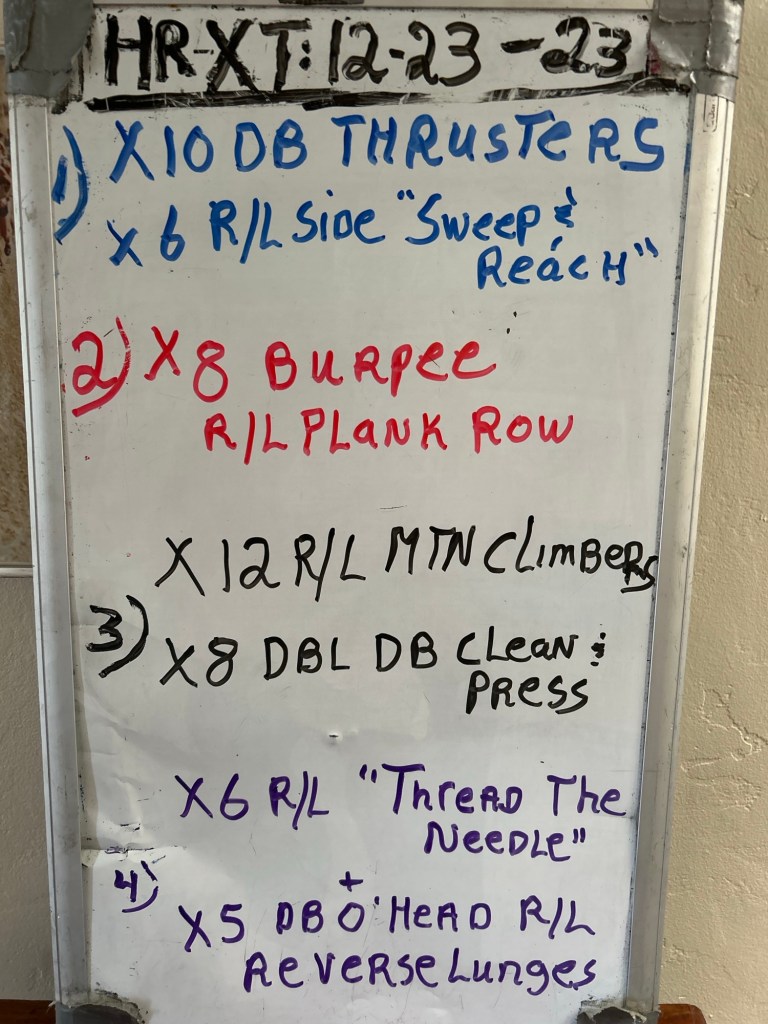 HR-XT: 12-23-23
1) X10 DB THRUSTERS
X6 R/L SIDE "SWEEP &
REACH"
2) X8 BURPEE
R/L PLANK ROW
X12 R/L MTN CLIMBERS
3)
X8 DBL DB CLEAN &
PRESS
X6 R/L "THREAD THE
NEEDLE"
4) +
X5 DB O'HEAD R/L
REVERSE LUNGES